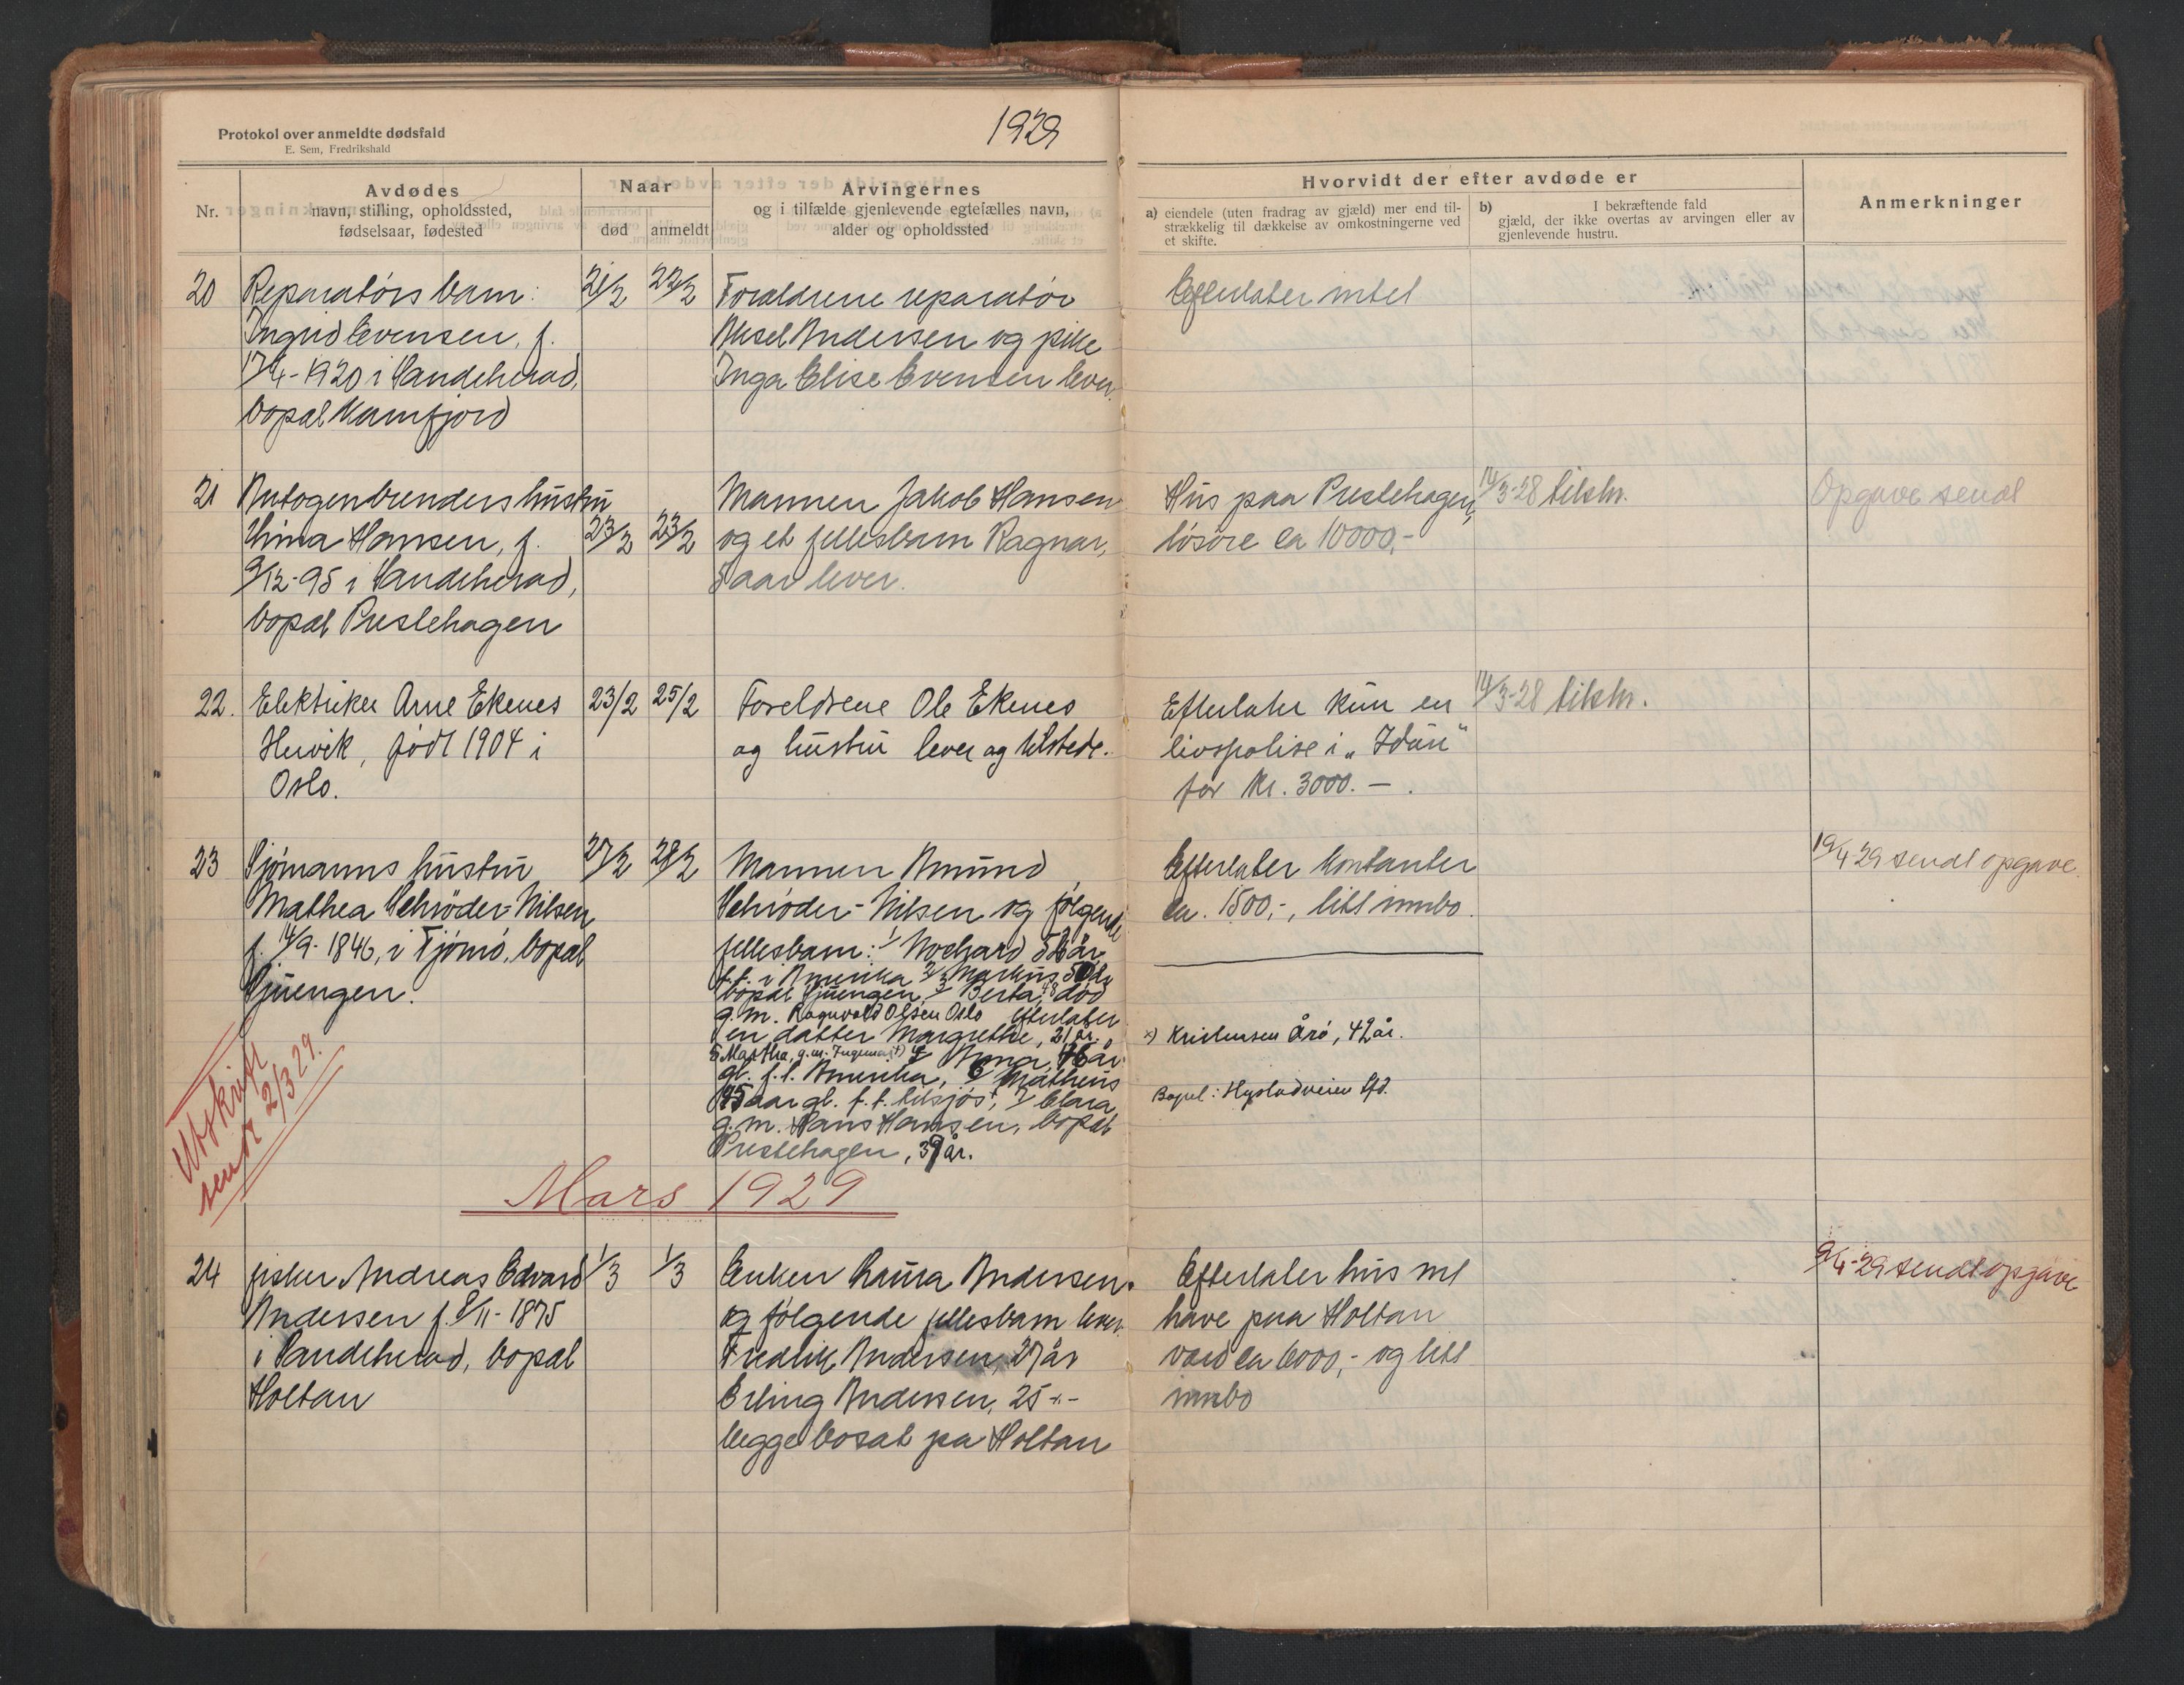 1929
Protokol over anmeldte dødsfald
E. Sem, Fredrikshald
Nr.
Avdødes
navn, stilling, opholdssted,
fødselsaar, fødested
Naar
død
anmeldt
Arvingernes
og i tilfælde gjenlevende egtefælles navn,
alder og opholdssted
Hvorvidt der efter avdøde er
a) eiendele (uten fradrag av gjæld) mer end til-
strækkelig til dækkelse av omkostningerne ved
et skifte.
b) I bekræftende fald
gjæld, der ikke overtas av arvingen eller av
gjenlevende hustru.
Anmerkninger
20
Reparatørs barn:
Ingrid Evensen, f.
17/4-1920 i Sandeherad,
bopæl Kamfjord
21/2
22/2
Forældrene reparatør
Aksel Andersen og pike
Inga Elise Evensen lever.
Efterlater intet
21
Autogenbrenders hustru
Mina Hansen, f.
9/12-95 i Sandeherad,
bopæl Prestehagen
23/2
23/2
Mannen Jakob Hansen
og et fellesbarn Ragnar,
5 aar lever.
Hus paa Prestehagen,
løsøre ca 10000,-
14/3-28 tilskr.
Opgave sendt
22.
Elektriker Arne Ekenes
Hervik, født 1904 i
Oslo.
23/2
25/2
Foreldrene Ole Ekenes
og hustru lever og tilstede.
Efterlater kun en
livspolise i "Idun"
for kr. 3000.-.
14/3-28 tilskr.
23
Sjømanns hustru
Mathea Schrøder-Nilsen
f. 14/9-1846, i Tjømø, bopæl
Sjuengen.
27/2
28/2
Mannen Amund
Schrøder-Nilsen og følgende
fellesbarn: 1/ 52 år
f.t. i Amerika 2/ Markus 50 år
bopæl Sjuengen, 3/ Berta, 48 død
g.m. Ragnvald Olsen Oslo efterlater
en datter Margrethe, 21 år.
5 Martha, g.m. Ingemar x) 4/ Anna, 46 år
gl. f.t. Amerika, 6/ Matheus
45 aar gl. f.t. tilsjøs, 7/ Clara,
g.m. Hans Hansen, bopæl
Prestehagen, 39 år.
Efterlater kontanter
ca. 1500,-, litt innbo.
x) Kristensen Årø, 42 år.
Bopel: Hystadveien Sfd.
19/4 29 sendt opgave.
Utskrift
sendt 2/3 29.
Mars 1929
24
fisker Andreas Edvard
Andersen f. 8/11-1875
i Sandeherad, bopæl
Holtan
1/3
1/3
Enken Laura Andersen
og følgende fellesbarn lever.
Fredrik Andersen, 27 år
Erling Andersen, 25 -"-
begge bosat pa Holtan
Efterlater hus med
have paa Holtan
værd ca 6000,- og litt
innbo
9/4-29 sendt opgave